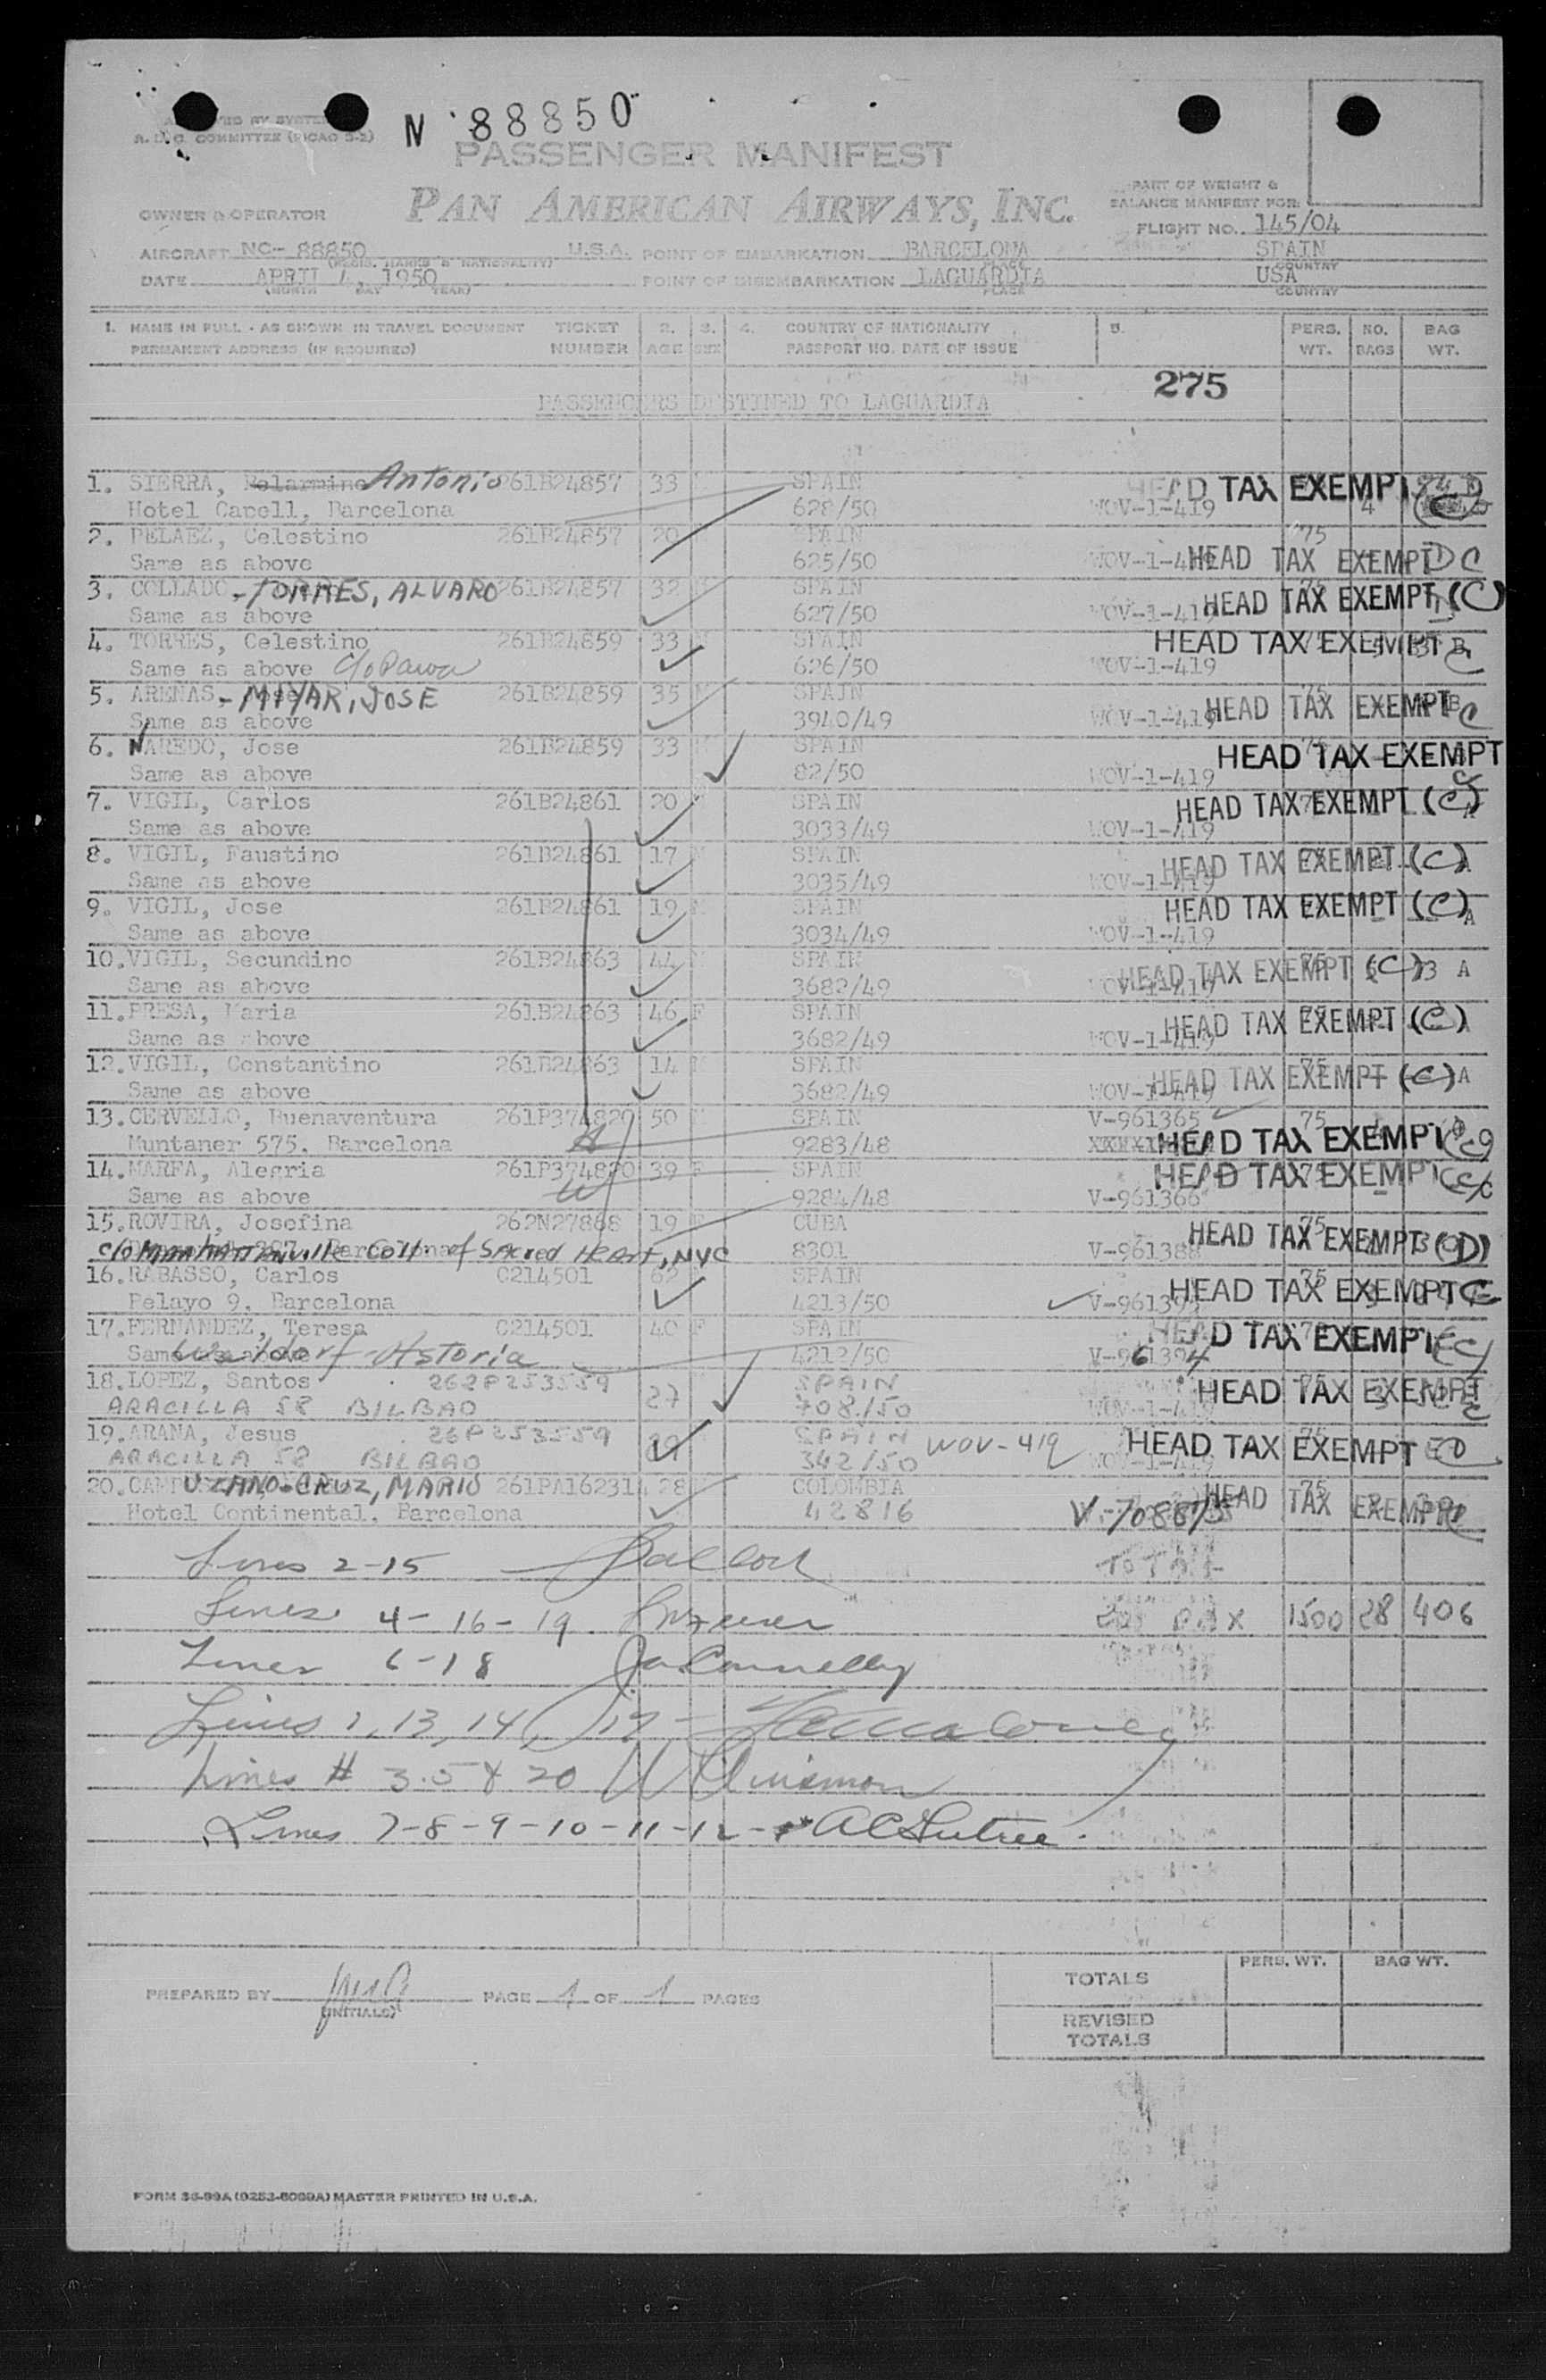 N 88850
A. D. C. COMMITTEE (PICAO 3-2)
PASSENGER MANIFEST
PAN AMERICAN AIRWAYS, INC.
PART OF WEIGHT &
BALANCE MANIFEST FOR:
OWNER & OPERATOR
FLIGHT NO. 145/04
AIRCRAFT NC- 88850 U.S.A. POINT OF EMBARKATION BARCELONA SPAIN
(REGIS. MARKS & NATIONALITY) PLACE COUNTRY
DATE APRIL 4, 1950 POINT OF DISEMBARKATION LAGUARDIA USA
(MONTH DAY YEAR) PLACE COUNTRY
1. NAME IN FULL - AS SHOWN IN TRAVEL DOCUMENT TICKET 2. 3. 4. COUNTRY OF NATIONALITY 5. PERS. NO. BAG
PERMANENT ADDRESS (IF REQUIRED) NUMBER AGE SEX PASSPORT NO. DATE OF ISSUE WT. BAGS WT.
275
PASSENGERS DESTINED TO LAGUARDIA
1. SIERRA, Belarmino Antonio 261B24857 33 SPAIN HEAD TAX EXEMPT
Hotel Capell, Barcelona 628/50 WOV-1-419 4
2. PELAEZ, Celestino 261B24857 20 SPAIN 75
Same as above 625/50 WOV-1-419 HEAD TAX EXEMPT C
3. COLLADO-TORRES, ALVARO 261B24857 32 SPAIN 75 HEAD TAX EXEMPT (C)
Same as above 627/50 WOV-1-419
4. TORRES, Celestino 261B24859 33 SPAIN HEAD TAX EXEMPT B
Same as above 626/50 WOV-1-419 C
5. ARENAS-MIYAR, JOSE 261B24859 35 SPAIN 75 HEAD TAX EXEMPT C
Same as above 3940/49 WOV-1-419
6. NAREDO, Jose 261B24859 33 SPAIN HEAD TAX EXEMPT
Same as above 82/50 WOV-1-419 C
7. VIGIL, Carlos 261B24861 20 SPAIN HEAD TAX EXEMPT (C)
Same as above 3033/49 WOV-1-419
8. VIGIL, Faustino 261B24861 17 SPAIN HEAD TAX EXEMPT (C)
Same as above 3035/49 WOV-1-419
9. VIGIL, Jose 261B24861 19 SPAIN HEAD TAX EXEMPT (C) A
Same as above 3034/49 WOV-1-419
10. VIGIL, Secundino 261B24863 44 SPAIN HEAD TAX EXEMPT (C) A
Same as above 3682/49 WOV-1-419
11. PRESA, Maria 261B24863 46 F SPAIN HEAD TAX EXEMPT (C)
Same as above 3682/49 WOV-1-419
12. VIGIL, Constantino 261B24863 14 M SPAIN 75 HEAD TAX EXEMPT (C) A
Same as above 3682/49 WOV-1-419
13. CERVELLO, Buenaventura 261P374820 50 M SPAIN V-961365 75
Muntaner 575, Barcelona 9283/48 HEAD TAX EXEMPT
14. MARFA, Alegria 261P374820 39 F SPAIN HEAD TAX EXEMPT
Same as above 9284/48 V-961366
15. ROVIRA, Josefina 262N27888 19 CUBA 75 HEAD TAX EXEMPT (D)
c/o MANHATTANVILLE COLL of SACred HEART, NYC 8301 V-961388
16. RABASSO, Carlos C214501 62 SPAIN 75 HEAD TAX EXEMPT C
Pelayo 9, Barcelona 4213/50
17. FERNANDEZ, Teresa C214501 40 F SPAIN HEAD TAX EXEMPT (C)
Same as above Waldorf-Astoria 4212/50 V-961394
18. LOPEZ, Santos 262P253559 27 SPAIN HEAD TAX EXEMPT
ARACILLA 58 BILBAO 708/50 WOV-1-419 C
19. ARANA, Jesus 26P253559 SPAIN HEAD TAX EXEMPT
ARACILLA 58 BILBAO 342/50 WOV-419 WOV-1-419
20. UZCANO-CRUZ, MARIO 261PA16231 28 COLOMBIA 75 HEAD TAX EXEMPT
Hotel Continental, Barcelona 42816 V-708875
Lines 2-15 TOTAL
Lines 4-16-19 PAX 1500 28 406
Lines 6-18 Connelly
Lines 1, 13, 14, 17
Lines # 3.5 & 20
Lines 7-8-9-10-11-12
PREPARED BY (INITIALS) PAGE 1 OF 1 PAGES
PERS. WT. BAG WT.
TOTALS
REVISED
TOTALS
FORM 36-99A (0253-8099A) MASTER PRINTED IN U.S.A.